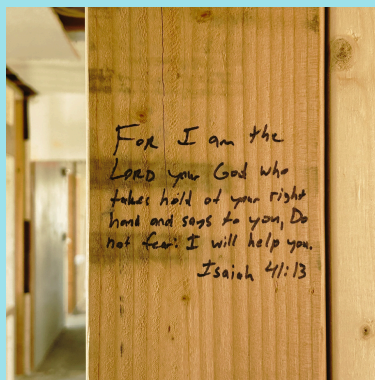 For I am the
LORD your God who
takes hold of your right
hand and says to you, Do
not fear: I will help you.
Isaiah 41:13